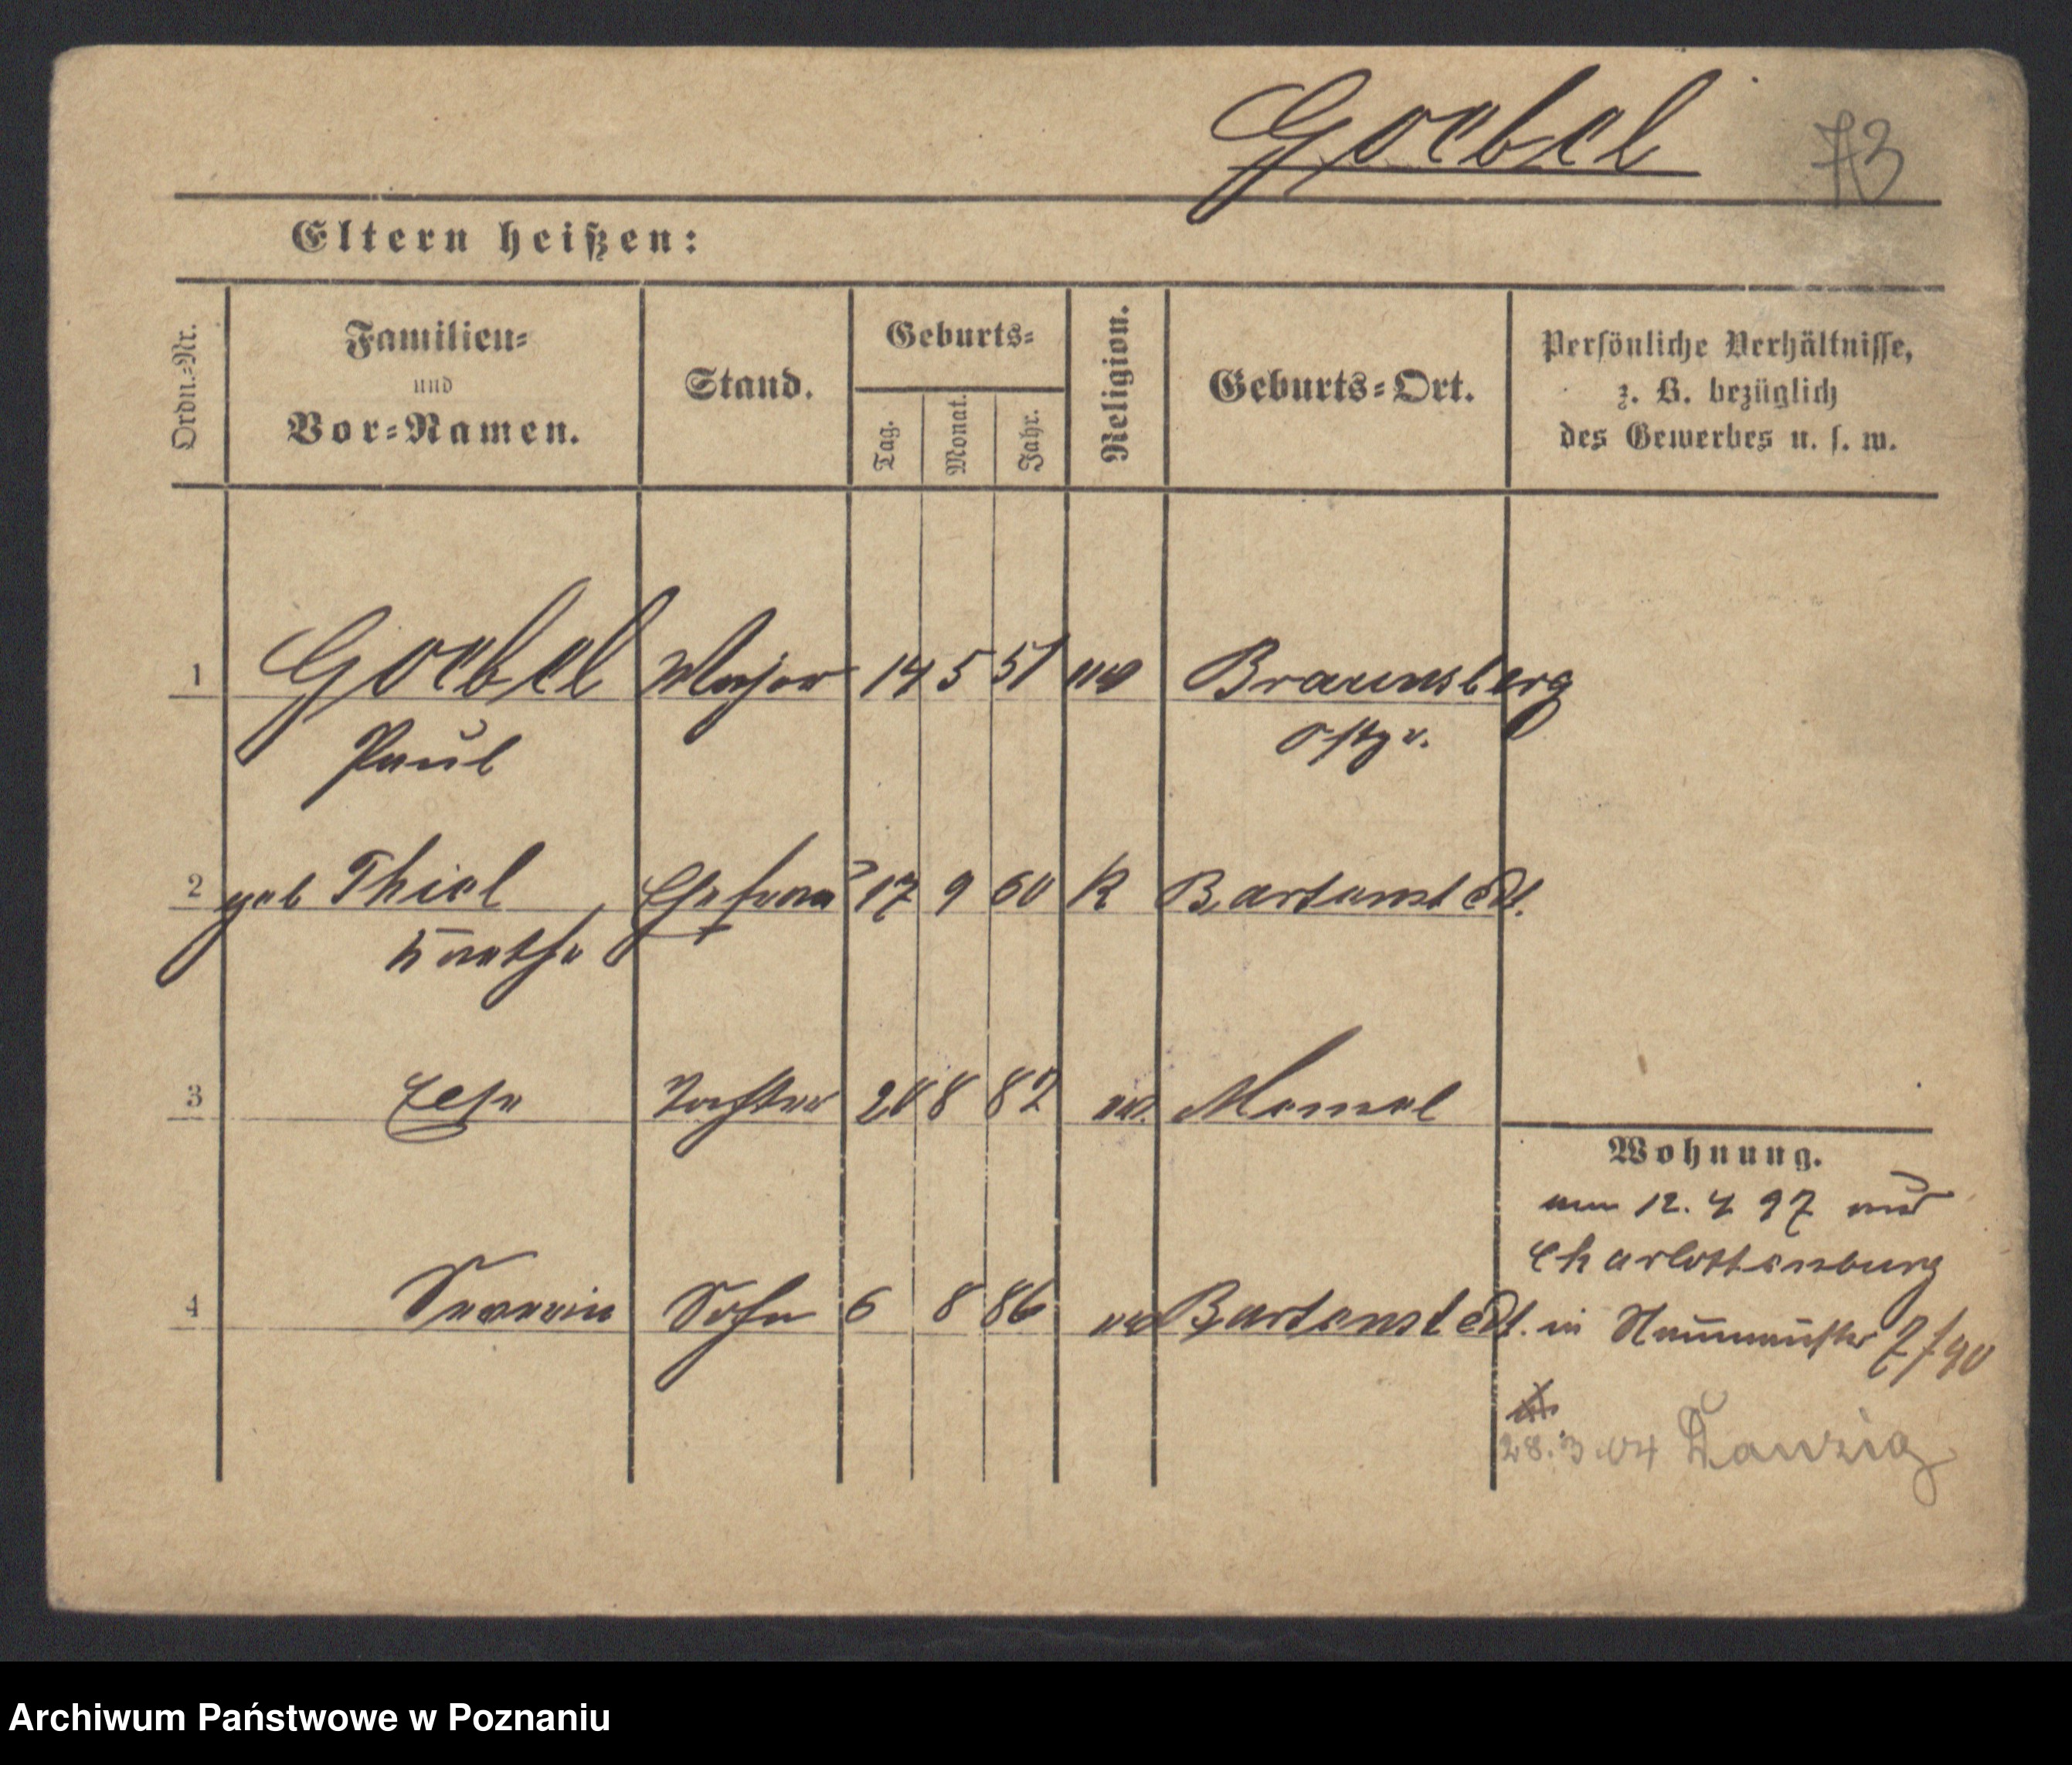 Goebel 73
Eltern heißen:
Ordn.-Nr.
Familien-
und
Vor-Namen.
Stand.
Geburts-
Tag.
Monat.
Jahr.
Religion.
Geburts-Ort.
Persönliche Verhältnisse,
z. B. bezüglich
des Gewerbes u. s. w.
1 Goebel Major 14 5 51 Braunsberg
Paul Ostpr.
2 geb Thiel Ehefrau 17 9 60 K Bartenst
Kaethe
3 Else Tochter 20 8 82 ev. Memel
Wohnung.
12. 4 97
Charlottenburg
4 Severin Sohn 6 8 86 ev Bartenst in 7/90
28. 3 04 Danzig
Archiwum Państwowe w Poznaniu